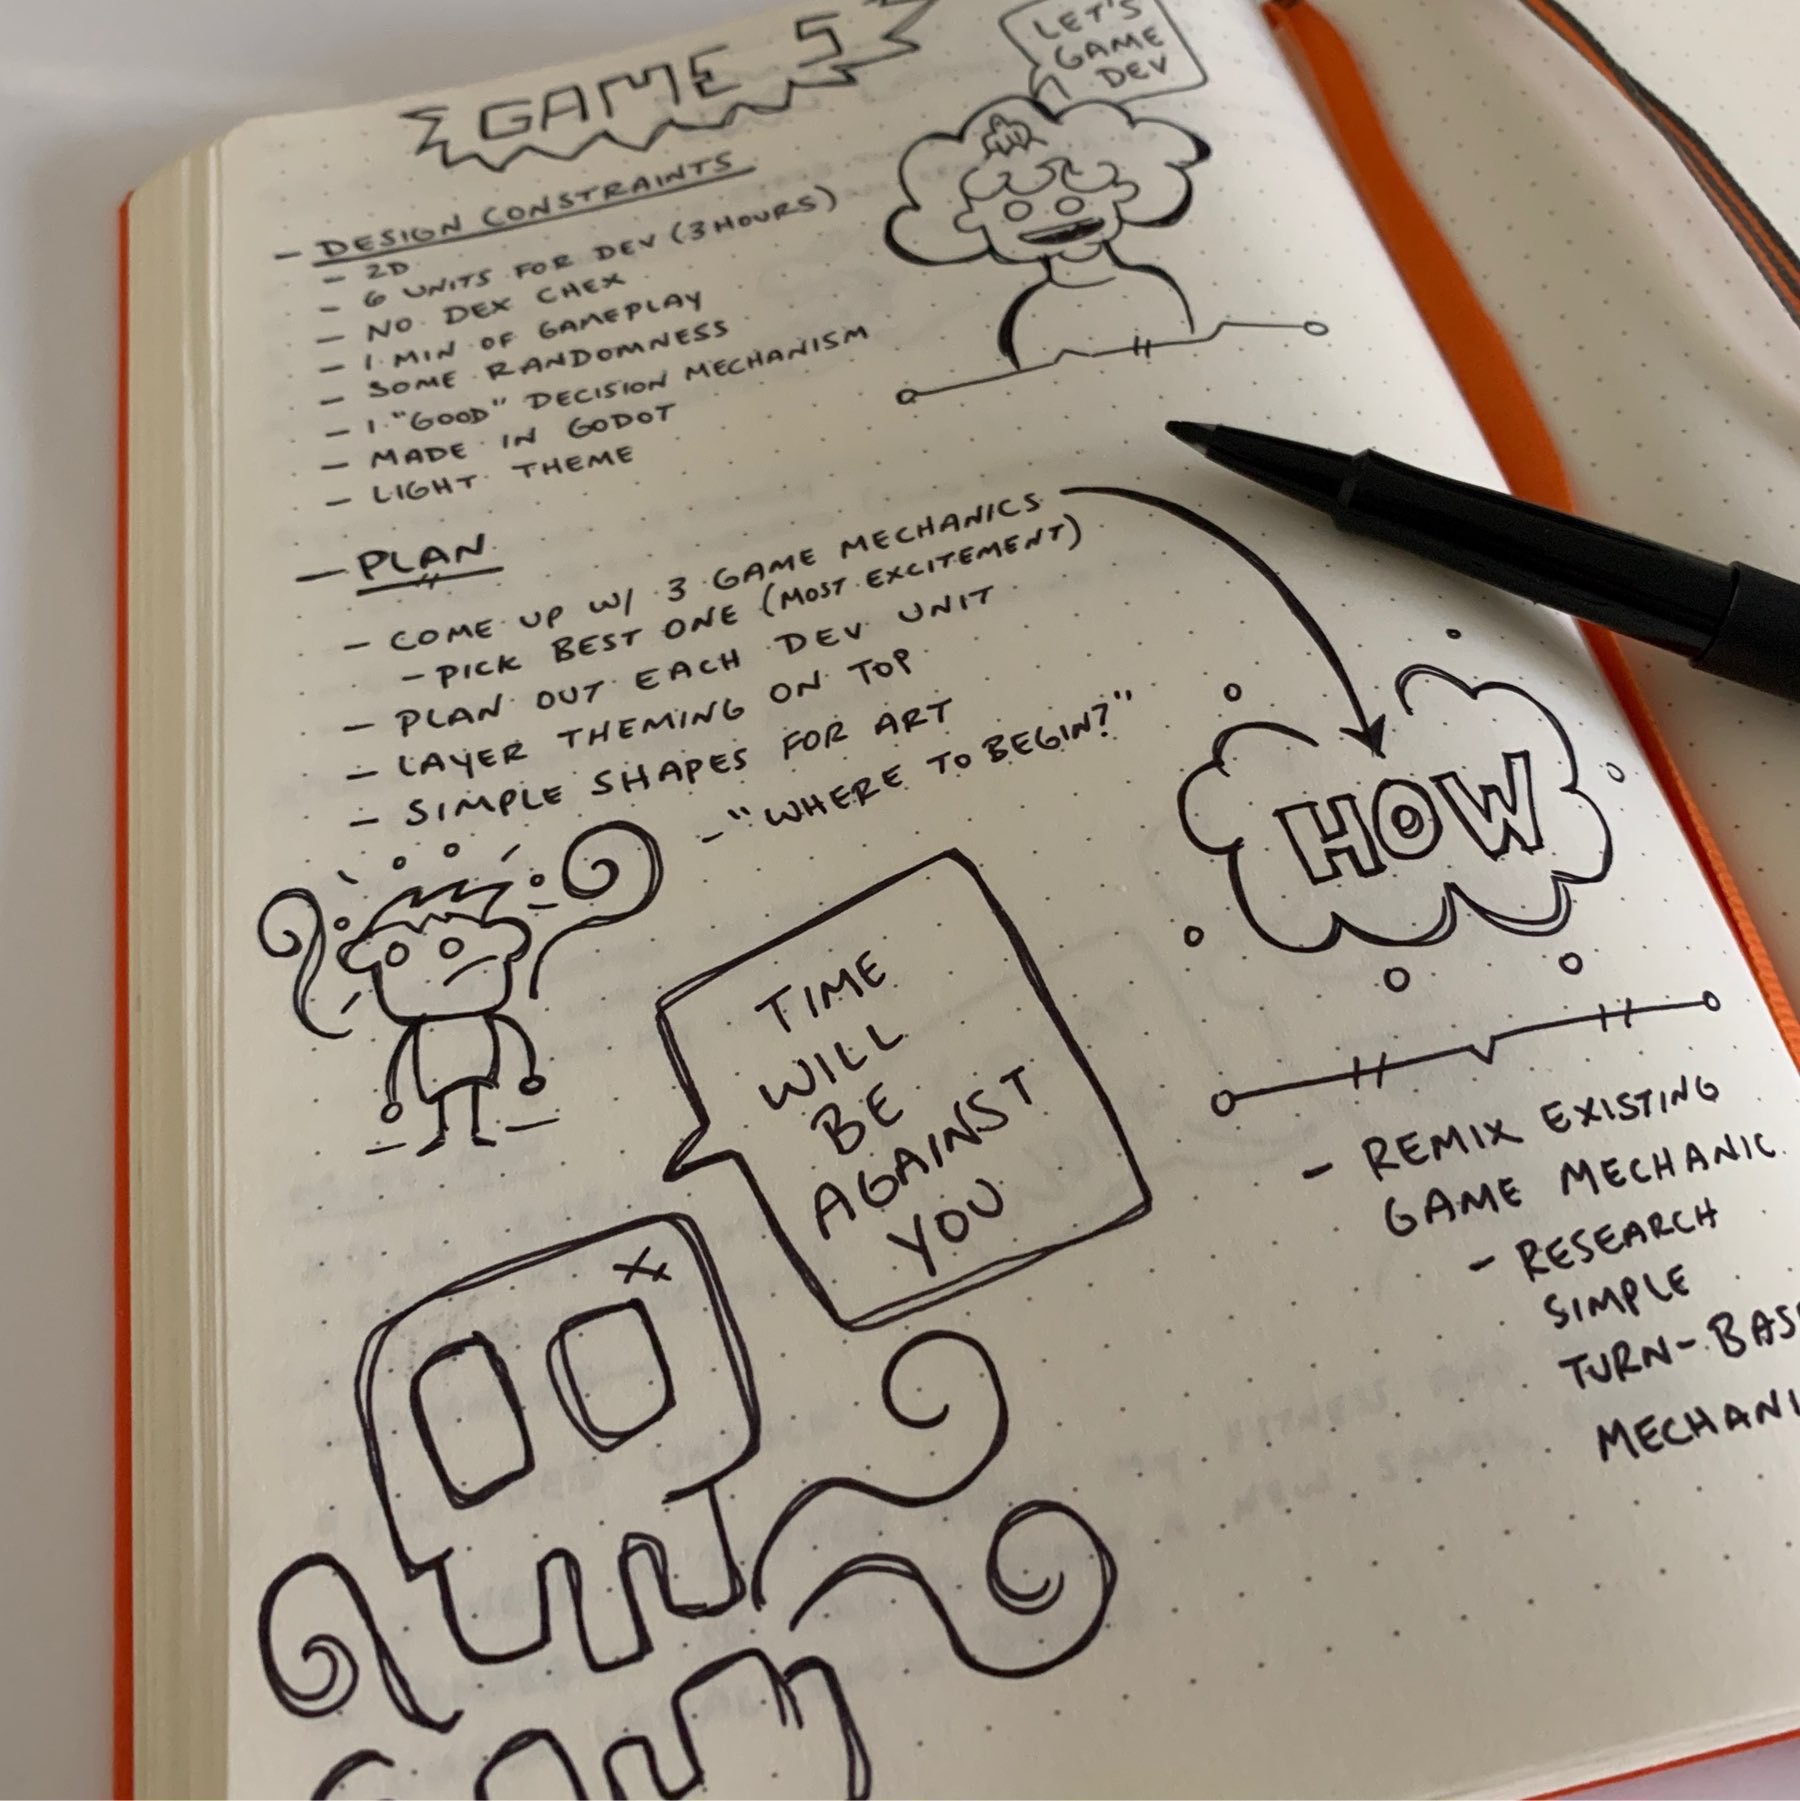 GAME 5
LET'S
GAME
DEV
- DESIGN CONSTRAINTS
- 2D
- 6 UNITS FOR DEV (3 HOURS)
- NO DEX CHEX
- 1 MIN OF GAMEPLAY
- SOME RANDOMNESS
- 1 "GOOD" DECISION MECHANISM
- MADE IN GODOT
- LIGHT THEME
- PLAN
- COME UP W/ 3 GAME MECHANICS
- PICK BEST ONE (MOST EXCITEMENT)
- PLAN OUT EACH DEV UNIT
- LAYER THEMING ON TOP
- SIMPLE SHAPES FOR ART
- "WHERE TO BEGIN?"
HOW
TIME
WILL
BE
AGAINST
YOU
- REMIX EXISTING
GAME MECHANIC
- RESEARCH
SIMPLE
TURN-BAS
MECHANI